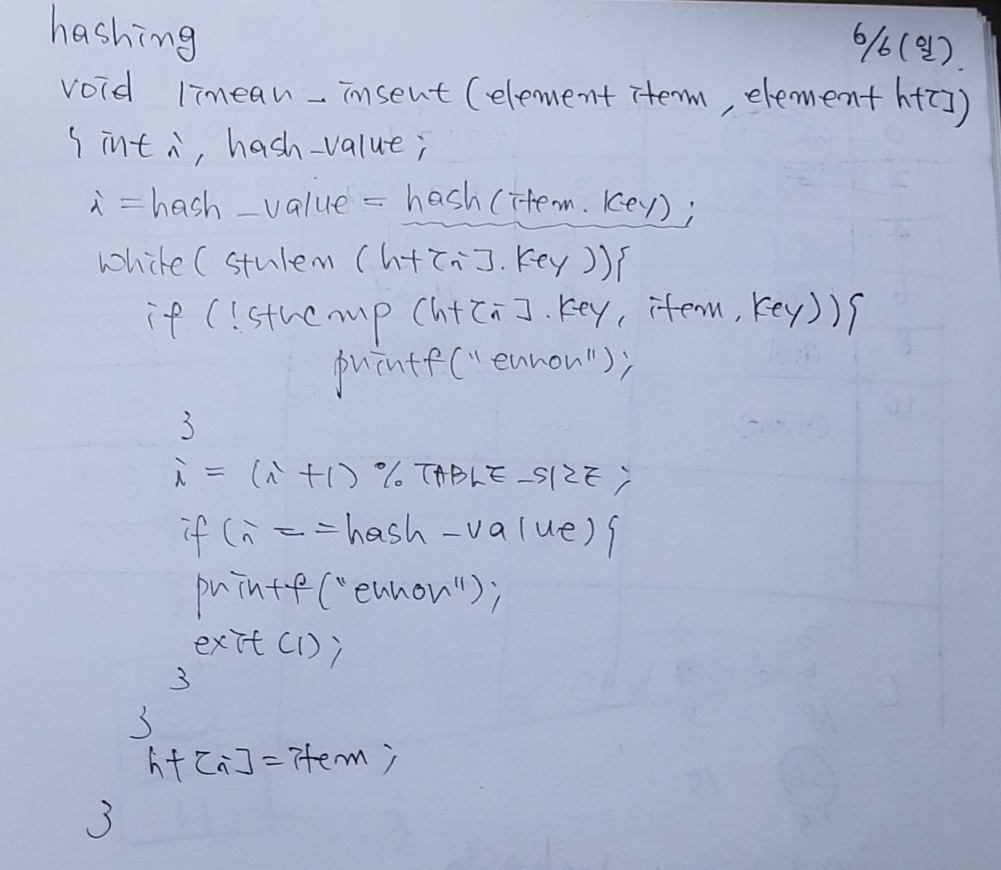 hashing 6/6(일).
void linear_insert(element item, element ht[])
{ int i, hash_value;
i = hash_value = hash(item.key);
while(strlen(ht[i].key)){
if(!strcmp(ht[i].key, item,key)){
printf("error");
}
i = (i+1) % TABLE_SIZE;
if(i==hash_value){
printf("error");
exit(1);
}
}
ht[i]=item;
}